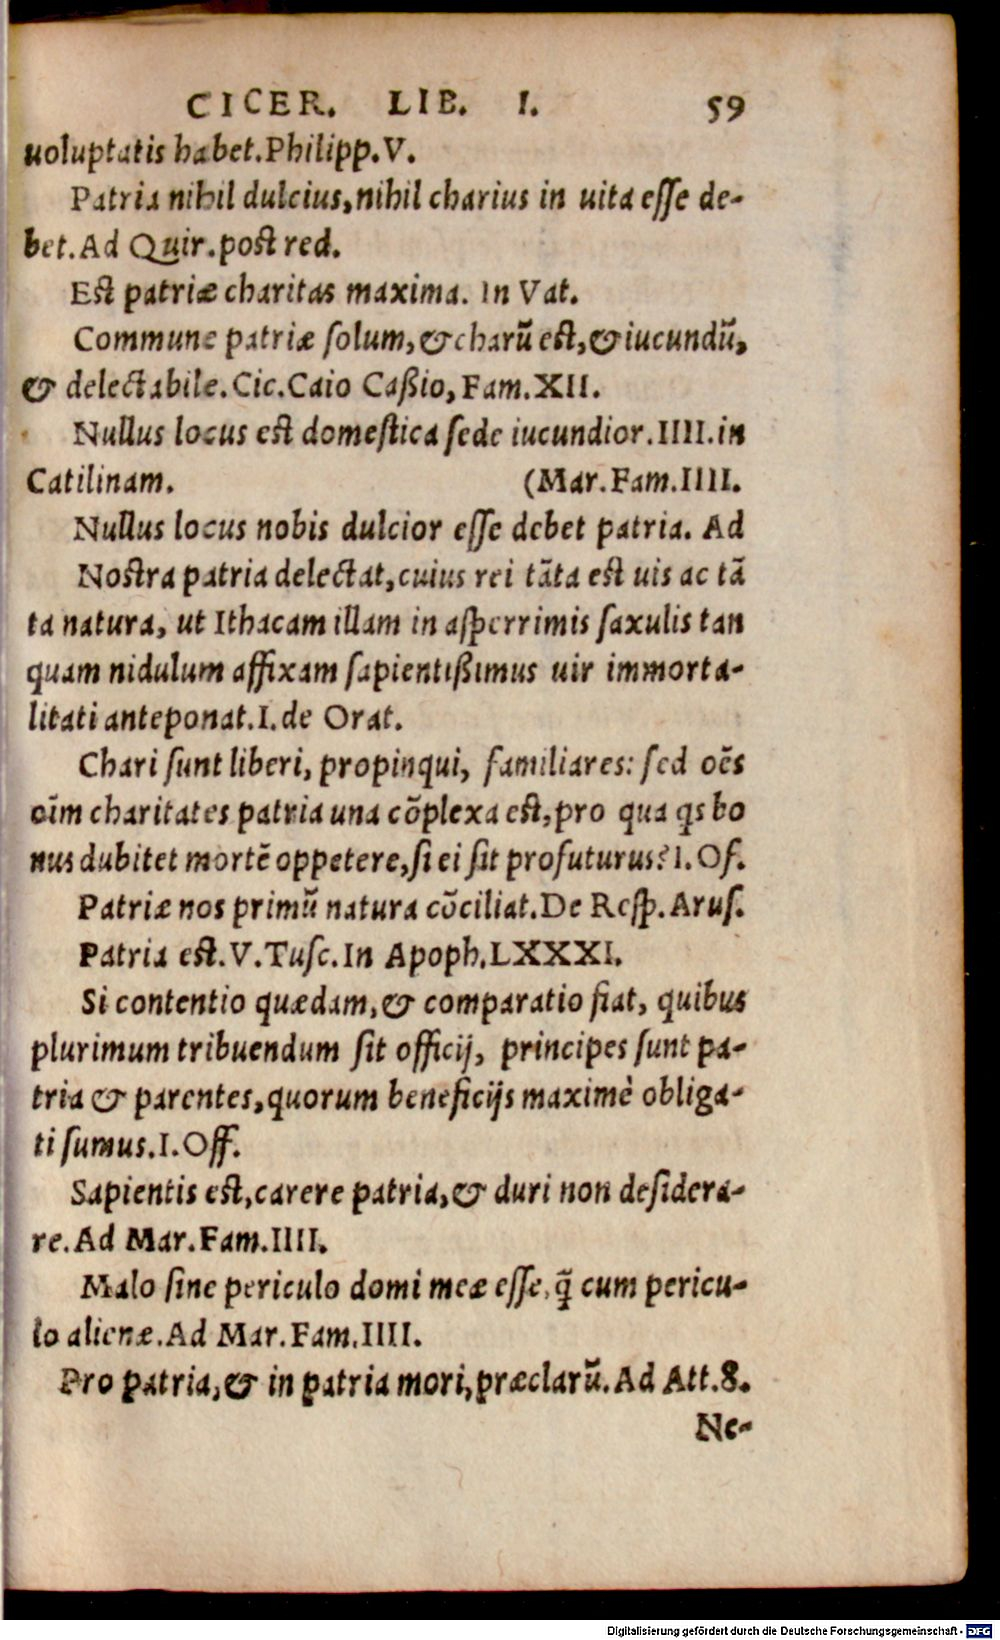 CICER. LIB. I. 59
uoluptatis habet. Philipp. V.
Patria nihil dulcius, nihil charius in uita esse de-
bet. Ad Quir. post red.
Est patriæ charitas maxima. In Vat.
Commune patriæ solum, & charū est, & iucundū,
& delectabile. Cic. Caio Caßio, Fam. XII.
Nullus locus est domestica sede iucundior. IIII. in
Catilinam. (Mar. Fam. IIII.
Nullus locus nobis dulcior esse debet patria. Ad
Nostra patria delectat, cuius rei tāta est uis ac tā
ta natura, ut Ithacam illam in asperrimis saxulis tan
quam nidulum affixam sapientißimus uir immorta-
litati anteponat. I. de Orat.
Chari sunt liberi, propinqui, familiares: sed oēs
oīm charitates patria una cōplexa est, pro qua qs bo
nus dubitet mortē oppetere, si ei sit profuturus? I. Of.
Patriæ nos primū natura cōciliat. De Resp. Arus.
Patria est. V. Tusc. In Apoph. LXXXI.
Si contentio quædam, & comparatio fiat, quibus
plurimum tribuendum sit officij, principes sunt pa-
tria & parentes, quorum beneficijs maximè obliga-
ti sumus. I. Off.
Sapientis est, carere patria, & duri non desidera-
re. Ad Mar. Fam. IIII.
Malo sine periculo domi meæ esse, q̄ cum pericu-
lo alienæ. Ad Mar. Fam. IIII.
Pro patria, & in patria mori, præclarū. Ad Att. 8.
Ne-
Digitalisierung gefördert durch die Deutsche Forschungsgemeinschaft - DFG